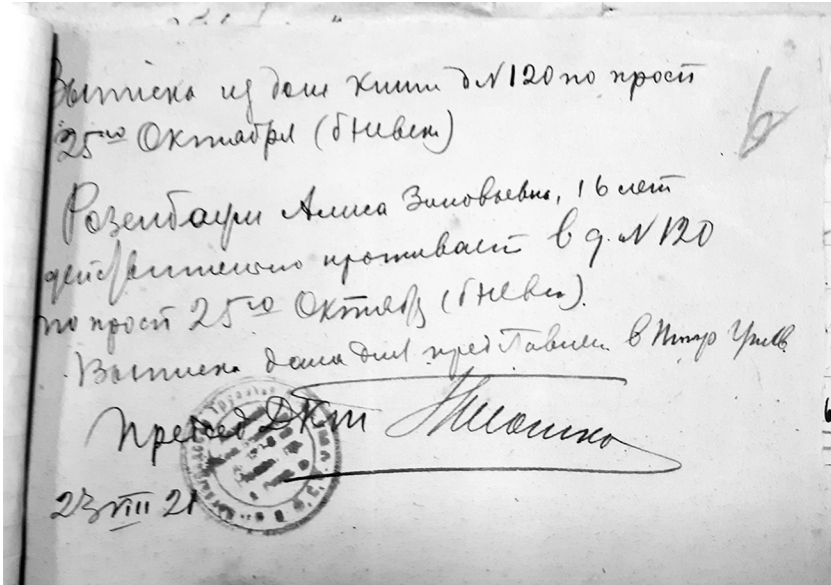 Выписка из дом книги д N 120 по просп
25го Октября (б Невск)
б
Розенбаум Алиса Зиновьевна, 16 лет
действительно проживает в д. N 120
по просп 25го Октября (б Невск).
Выписка дана для представлен в Петр Унив.
Председ
23 VIII 21